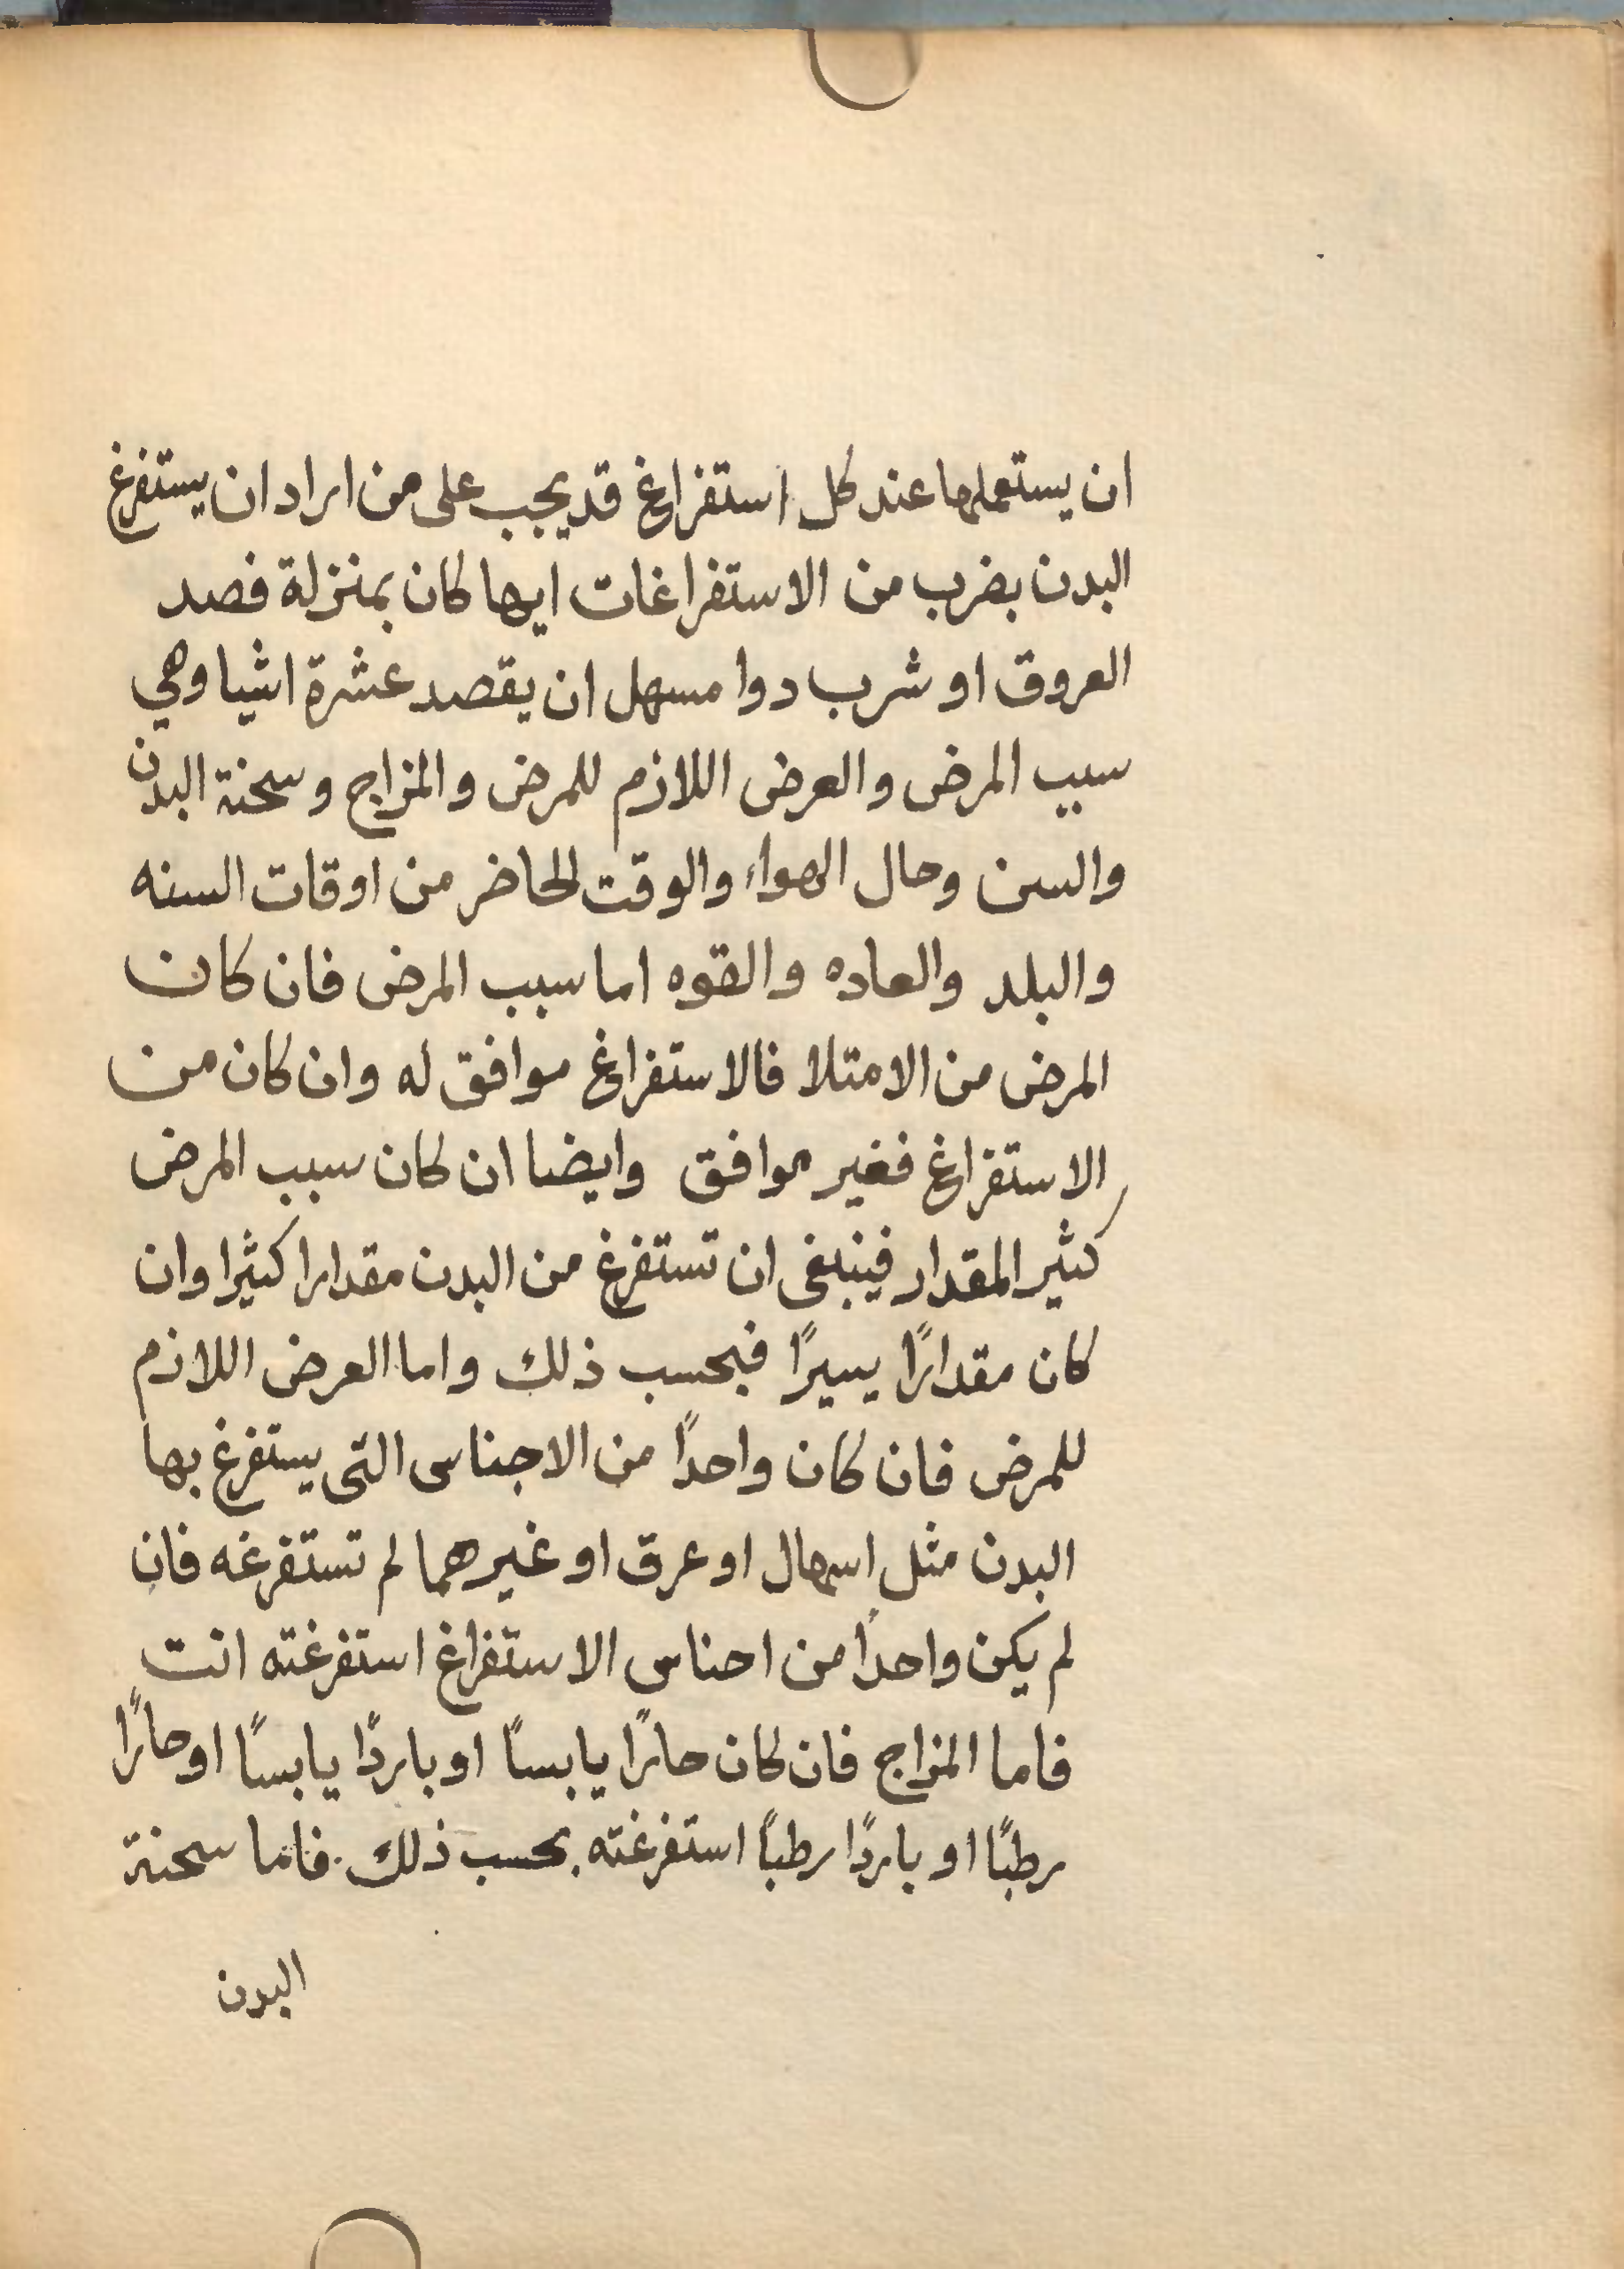 ان يستعملها عند كل استفراغ قد يجب على من اراد ان يستفرغ
البدن بضرب من الاستفراغات ايها كان بمنزلة فصد
العروق او شرب دوا مسهل ان يقصد عشرة اشيا وهي
سبب المرض والعرض اللازم للمرض والمزاج وسحنة البدن
والسن وحال الهواء والوقت الحاضر من اوقات السنه
والبلد والعاده والقوه اما سبب المرض فان كان
المرض من الامتلا فالاستفراغ موافق له وان كان من
الاستفراغ فغير موافق وايضا ان كان سبب المرض
كثير المقدار فينبغي ان تستفرغ من البدن مقدارا كثيرا وان
كان مقدارًا يسيرًا فبحسب ذلك واما العرض اللازم
للمرض فان كان واحدًا من الاجناس التي يستفرغ بها
البدن مثل اسهال او عرق او غيرهما لم تستفرغه فان
لم يكن واحدًا من احناس الاستفراغ استفرغته انت
فاما المزاج فان كان حارًا يابسًا او باردًا يابسًا او حارًا
رطبًا او باردًا رطبًا استفرغته بحسب ذلك. فاما سحنة
البدن